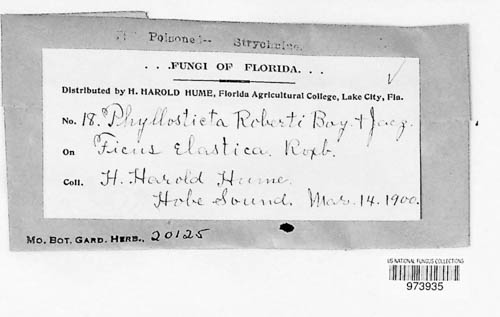 Poisoned-- Strychnine.
. . .FUNGI OF FLORIDA. . .
Distributed by H. HAROLD HUME, Florida Agricultural College, Lake City, Fla.
No. 18. Phyllosticta Roberti Boy. & Jacz.
On Ficus elastica. Roxb.
Coll. H. Harold Hume.
Hobe Sound. Mar. 14. 1900.
MO. BOT. GARD. HERB., 20125
US NATIONAL FUNGUS COLLECTIONS
973935